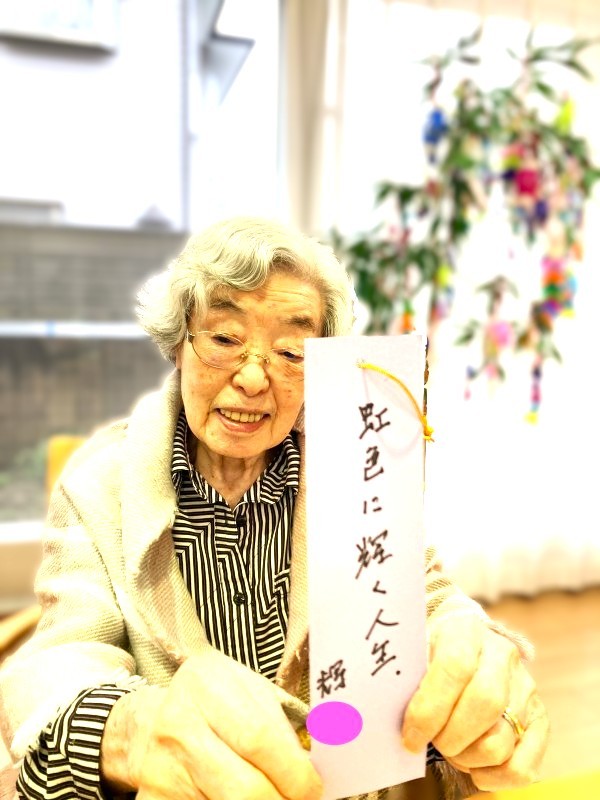 虹色に輝く人生.
輝